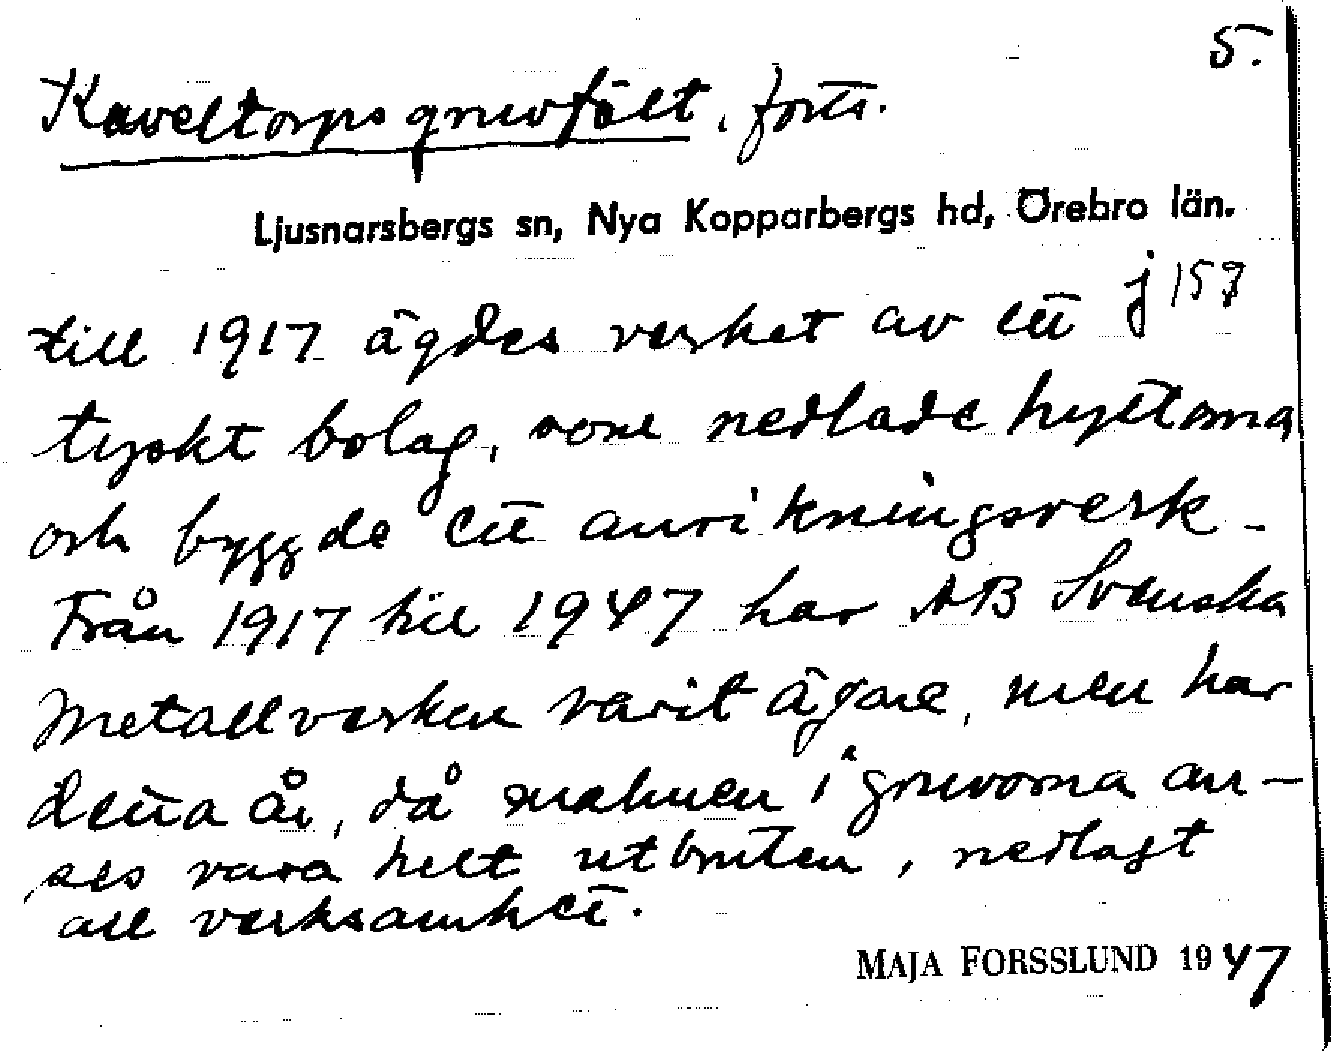 5.
Kaveltorps gruvfält, forts.
Ljusnarsbergs sn, Nya Kopparbergs hd, Örebro län.
j 157
till 1917 ägdes verket av ett
tyskt bolag, som nedlade hyttorna
och byggde ett anrikningsverk.
Från 1917 till 1947 har AB Svenska
Metallverken varit ägare, men har
detta år, då malmen i gruvorna an-
ses vara helt utbruten, nedlagt
all verksamhet.
MAJA FORSSLUND 1947